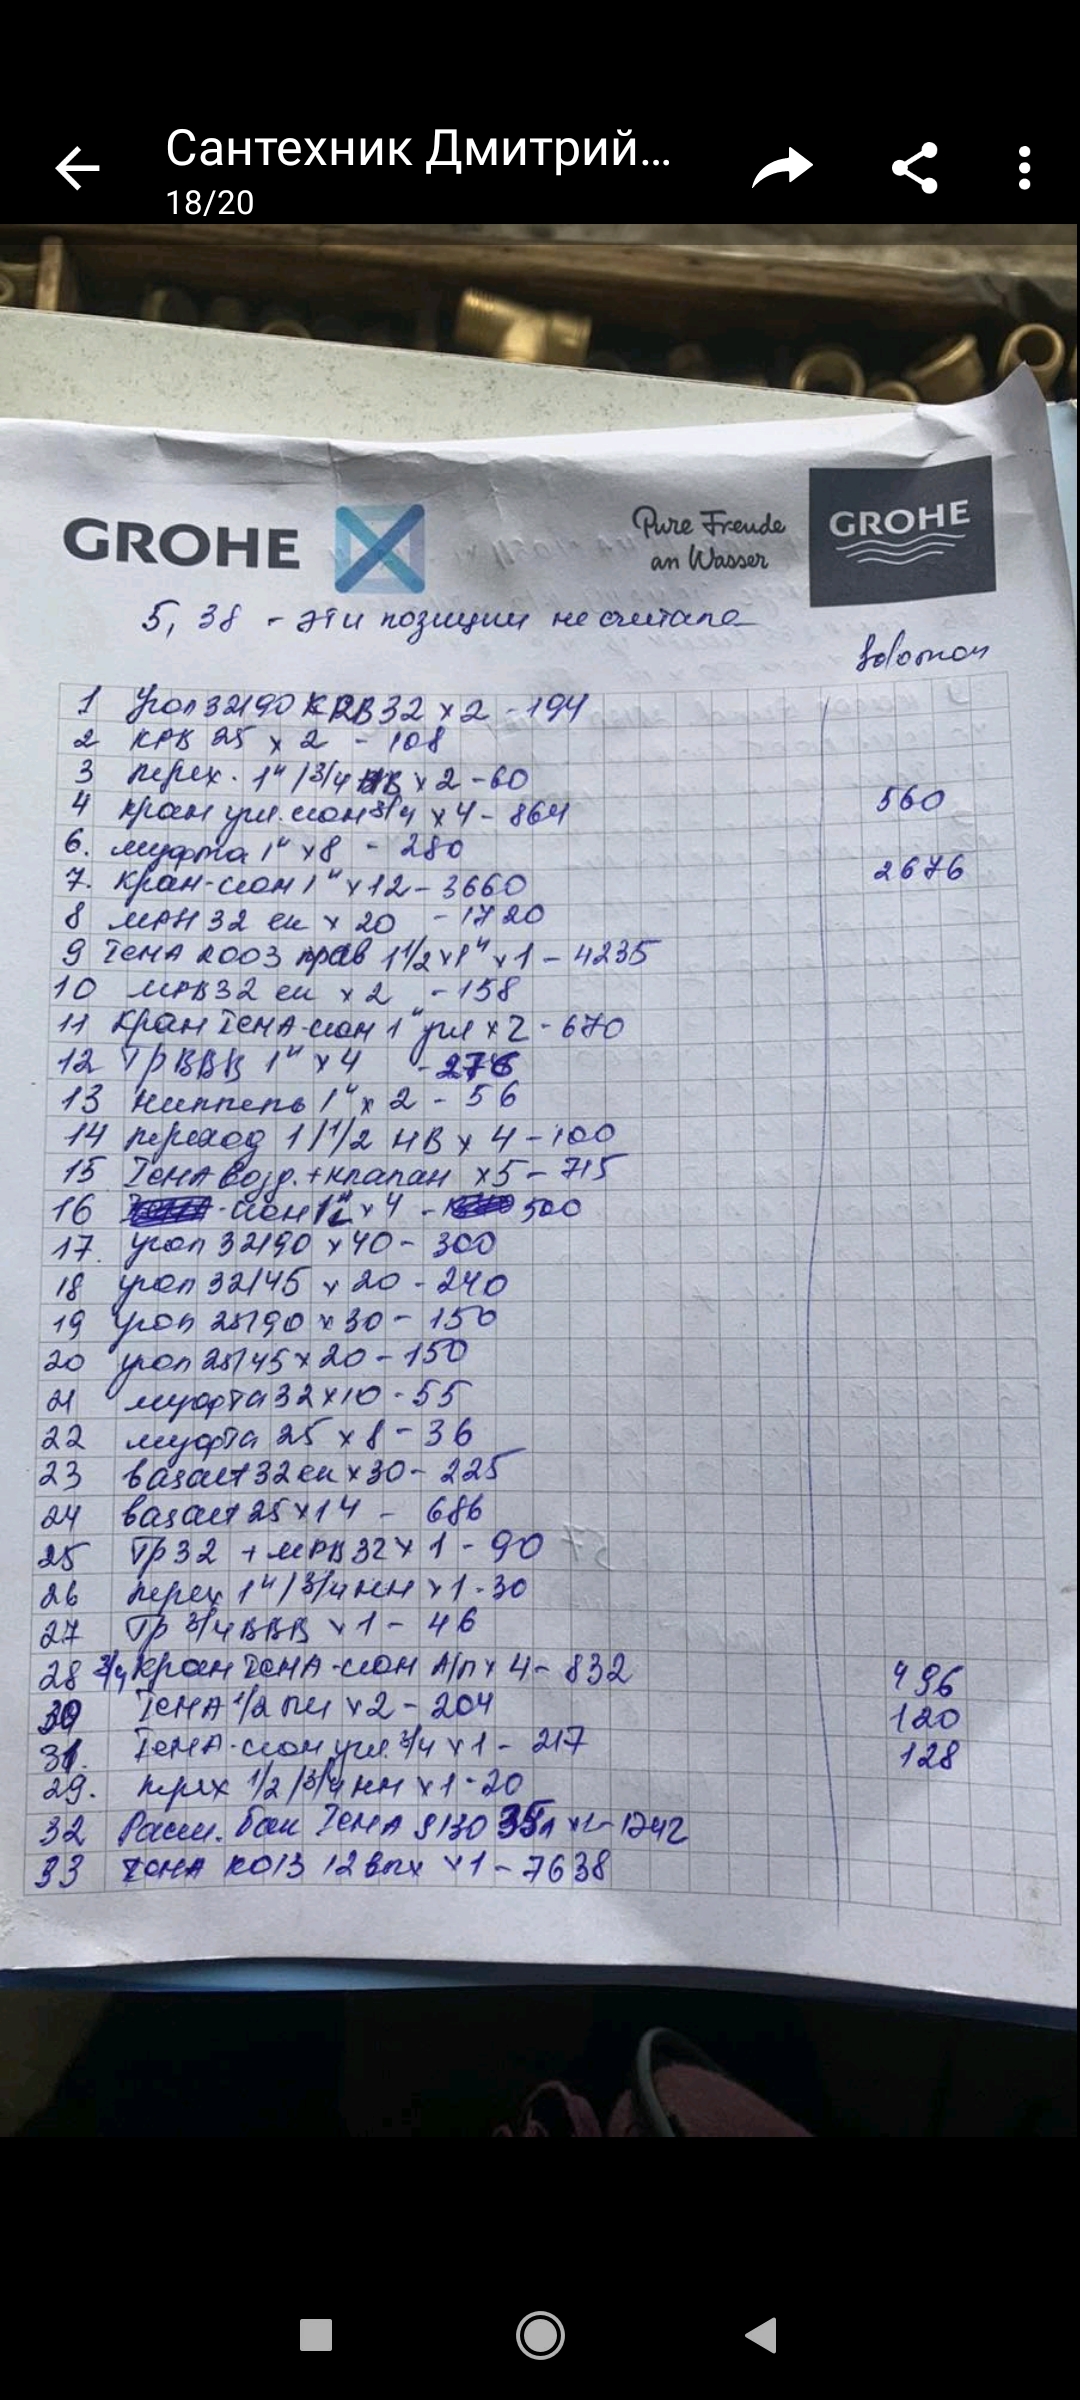 Сантехник Дмитрий...
18/20
GROHE
Pure Freude
an Wasser
GROHE
5, 38 - эти позиции не считала
Solomon
1 Угол 32/90 КРВ 32 x 2 - 194
2 КРВ 25 x 2 - 108
3 перех. 1"/3/4 НВ x 2 - 60
4 кран угл. сгон 3/4 x 4 - 864 560
6. муфта 1" x 8 - 280
7. кран-сгон 1" x 12 - 3660 2676
8 МРН 32 ек x 20 - 1720
9 ICMA R003 прав 1 1/2 x 1" x 1 - 4235
10 МРВ 32 ек x 2 - 158
11 Кран ICMA-сгон 1" угл x 2 - 670
12 ТР ВВВ 1" x 4 - 276
13 ниппель 1" x 2 - 56
14 переход 1/1/2 НВ x 4 - 100
15 ICMA возд. + клапан x 5 - 715
16 - сгон x 4 - 500
17. угол 32/90 x 40 - 300
18 угол 32/45 x 20 - 240
19 угол 25/90 x 30 - 150
20 угол 25/45 x 20 - 150
21 муфта 32 x 10 - 55
22 муфта 25 x 8 - 36
23 32 ек x 30 - 225
24 25 x 14 - 686
25 Тр 32 + МРВ 32 x 1 - 90
26 перех 1"/3/4 нн x 1 - 30
27 Тр 3/4 ВВВ x 1 - 46
28 3/4 кран ICMA-сгон А/П x 4 - 832 496
30 ICMA 1/2 x 2 - 204 120
31. ICMA-сгон угл. 3/4 x 1 - 217 128
29. прех 1/2/3/4 нн x 1 - 20
32 Расш. бак ICMA 9130 35л x 1 - 1242
33 ICMA K013 12 вых x 1 - 7638